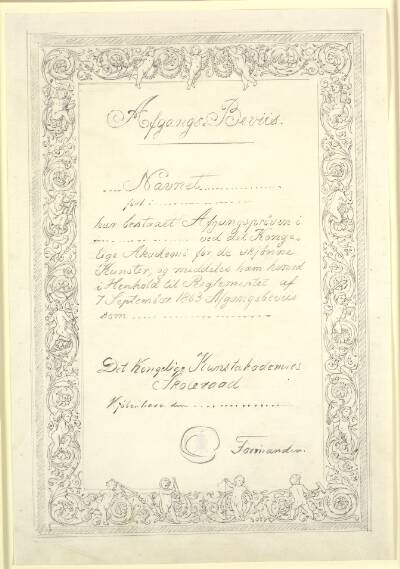 Afgangs-Beviis.
Navnet
fød i
har bestaaet Afgangsprøven i
ved det Konge-
lige Akademi for de skjønne
Kunster, og meddeles ham herved
i Henhold til Reglementet af
7 September 1863 Afgangsbeviis
som
Det Kongelige Kunstakademies
Skoleraad
Kjöbenhavn den
Formanden.